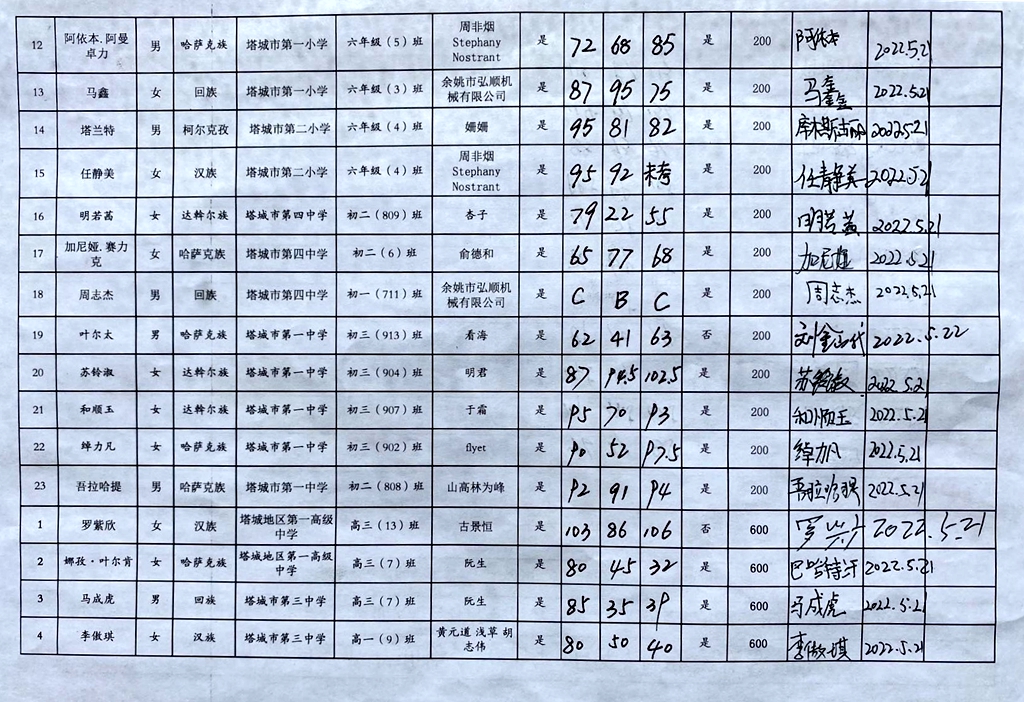 12 阿依本.阿曼卓力 男 哈萨克族 塔城市第一小学 六年级（5）班 周非烟 Stephany Nostrant 是 72 68 85 是 200 阿依本 2022.5.21
13 马鑫 女 回族 塔城市第一小学 六年级（3）班 余姚市弘顺机械有限公司 是 87 95 75 是 200 马鑫 2022.5.21
14 塔兰特 男 柯尔克孜 塔城市第二小学 六年级（4）班 姗姗 是 95 81 82 是 200 2022.5.21
15 任静美 女 汉族 塔城市第二小学 六年级（4）班 周非烟 Stephany Nostrant 是 95 92 未考 是 200 任静美 2022.5.21
16 明若茜 女 达斡尔族 塔城市第四中学 初二（809）班 杏子 是 79 22 55 是 200 2022.5.21
17 加尼娅.赛力克 女 哈萨克族 塔城市第四中学 初二（6）班 俞德和 是 65 77 68 是 200 加尼娅 2022.5.21
18 周志杰 男 回族 塔城市第四中学 初一（711）班 余姚市弘顺机械有限公司 是 C B C 是 200 周志杰 2022.5.21
19 叶尔太 男 哈萨克族 塔城市第一中学 初三（913）班 看海 是 62 41 63 否 200 2022.5.22
20 苏铃淑 女 达斡尔族 塔城市第一中学 初三（904）班 明君 是 87 94.5 102.5 是 200 苏铃淑 2022.5.21
21 和顺玉 女 达斡尔族 塔城市第一中学 初三（907）班 于霜 是 95 70 93 是 200 和顺玉 2022.5.21
22 绰力凡 女 哈萨克族 塔城市第一中学 初三（902）班 flyet 是 90 52 97.5 是 200 绰力凡 2022.5.21
23 吾拉哈提 男 哈萨克族 塔城市第一中学 初二（808）班 山高林为峰 是 92 91 94 是 200 2022.5.21
1 罗紫欣 女 汉族 塔城地区第一高级中学 高三（13）班 古景恒 是 103 86 106 否 600 2022.5.21
2 娜孜·叶尔肯 女 哈萨克族 塔城地区第一高级中学 高三（7）班 阮生 是 80 45 32 是 600 巴哈特汗 2022.5.21
3 马成虎 男 回族 塔城市第三中学 高三（7）班 阮生 是 85 35 39 是 600 马成虎 2022.5.21
4 李傲琪 女 汉族 塔城市第三中学 高一（9）班 黄元道 浅草 胡志伟 是 80 50 40 是 600 李傲琪 2022.5.21